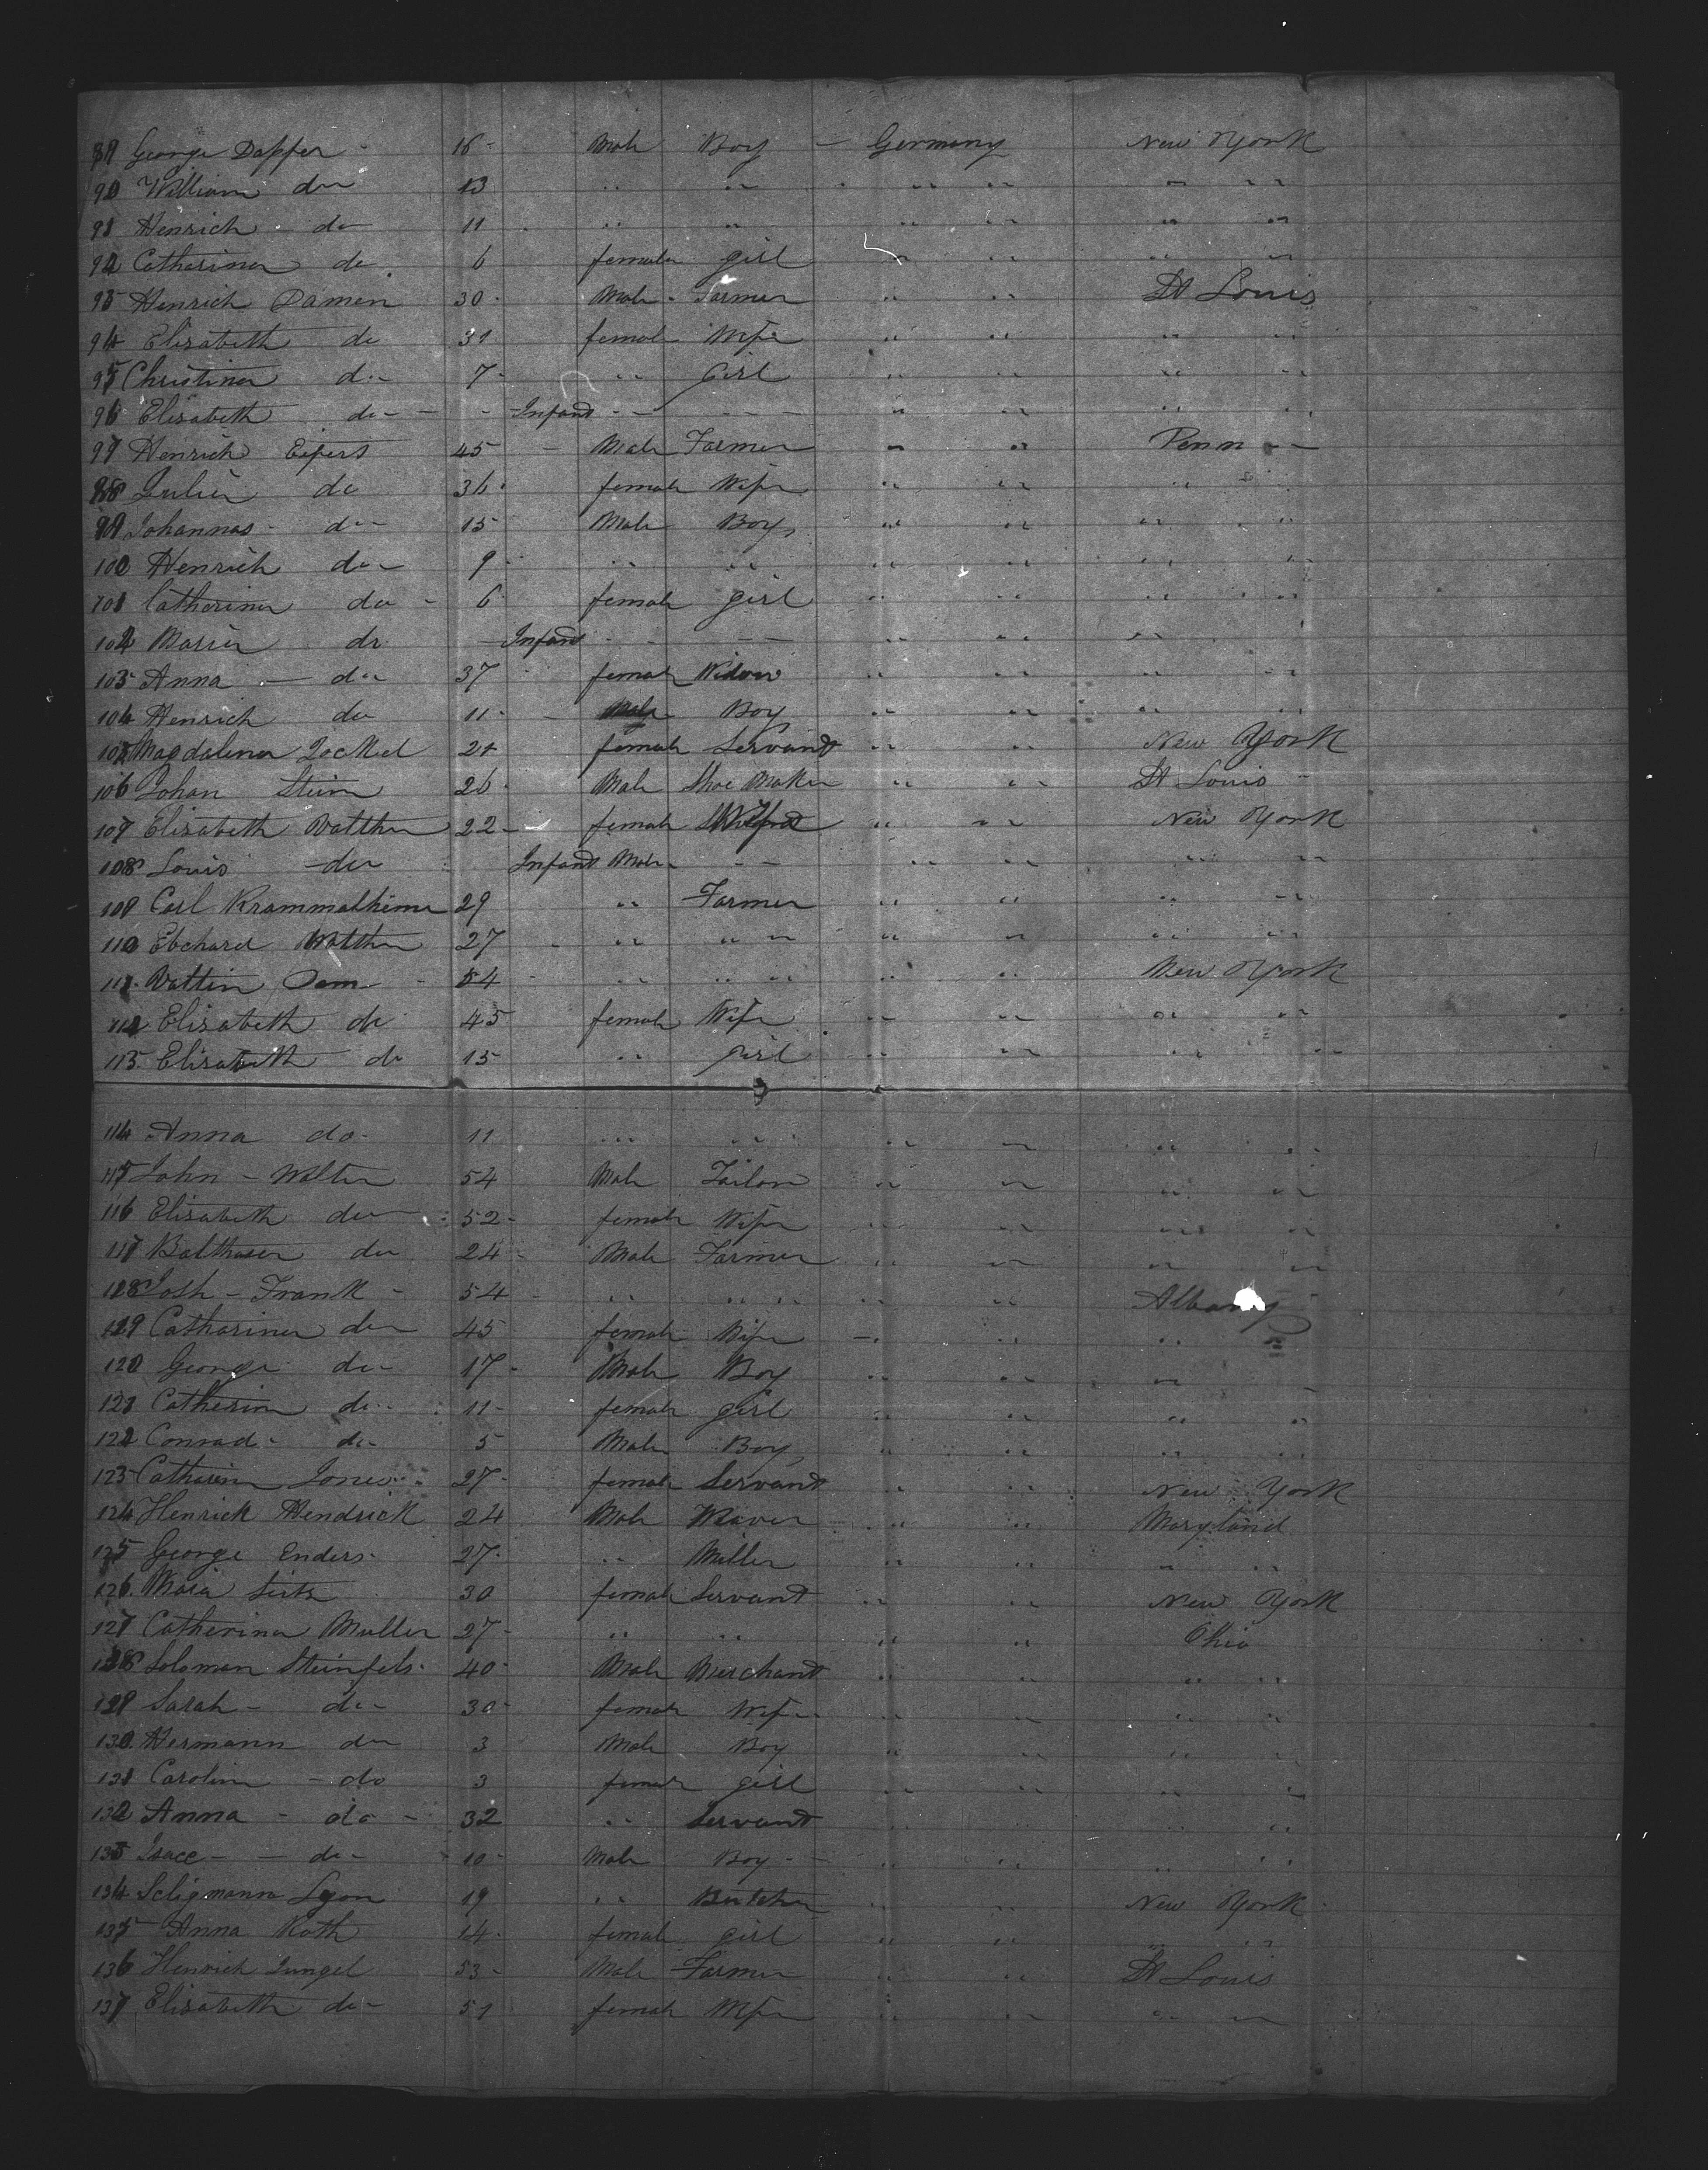 89 George Dapfer - 16 - Male Boy - Germany New York
90 William do 13 " " " " " "
91 Henrich - do 11 " " " " " "
92 Catherina do 6 female girl " " " "
93 Henrich Damen 30 - Male - Farmer " " St Louis
94 Elisabeth do 31 female Wife " " " "
95 Christina do 7 - " Girl " " " "
96 Elisabeth do - - - Infant - - - - " " " "
97 Henrich Eifert 45 - Male Farmer " " Penn - -
98 Julia do 36 female Wife " " " "
99 Johannas - do - 15 Male Boy " " " "
100 Henrich do - 9 - " " " " " "
101 Catherina do - 6 female girl " " " "
102 Maria do - Infant - - - - " " " "
103 Anna - do 37 female Widow " " " "
104 Henrich do 11 - - Male Boy " " " "
105 Magdalena Jockel 21 female Servant " " New York
106 Johan Stein 26 - Male Shoe Maker " " St Louis -
107 Elisabeth Walther 22 - female Wife " " New York
108 Louis - do Infant Male - - " " " "
109 Carl Krammalhime 29 " Farmer " " " "
110 Ebchard Walther 27 - " " " " " " "
111 Vattin Dam - 54 - " " " " " New York
112 Elisabeth do 45 female Wife " " " "
113 Elisabeth do 15 " girl " " " "
114 Anna do - 11 " " " " " "
115 John - Walter 54 Male Tailor " " " "
116 Elisabeth do - 52 - female Wife " " " "
117 Balthaser do 24 - Male Farmer " " " "
118 Josh - Frank - 54 - " " " " " Albany
119 Catharina do 45 female Wife " " " "
120 George do - 17 - Male Boy " " " "
121 Catherin do - 11 - female girl " " " "
122 Conrad - do - 5 Male Boy " " " "
123 Catharin Jones - 27 - female Servant " " New York
124 Henrick Hendrick 24 Male Weaver " " Maryland
125 George Enders - 27 - " Miller " " " "
126 Maria Seitz 30 female Servant " " New York
127 Catherina Muller 27 - " " " " Ohio
128 Soloman Steinfels - 40 - Male Merchant " " " "
129 Sarah - do - 30 - female Wife " " " "
130 Hermann do 3 Male Boy " " " "
131 Carolin - do 3 female girl " " " "
132 Anna - do - 32 " Servant " " " "
133 Isace - - do - 10 - Male Boy - - " " " "
134 Seligmann Lyon 19 " Butcher " " New York
135 Anna Roth 14 - female girl " " " "
136 Henrich Jungel 53 - Male Farmer " " St Louis
137 Elisabeth do - 51 female Wife " " " "